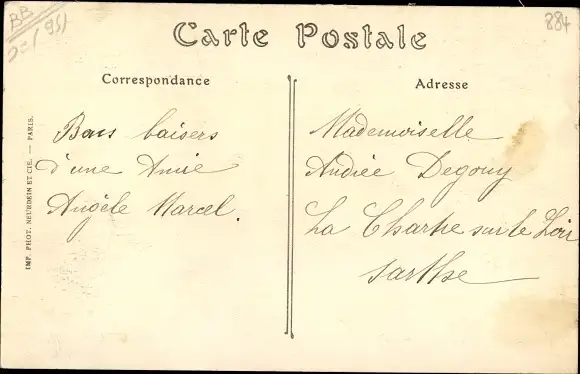 884
Carte Postale
Correspondance
Bons baisers
d'une Amie
Angèle Marcel.
Adresse
Mademoiselle
Andrée Degouy
La Chartre sur le Loir
Sarthe
IMP. PHOT. NEURDEIN ET CIE. — PARIS.